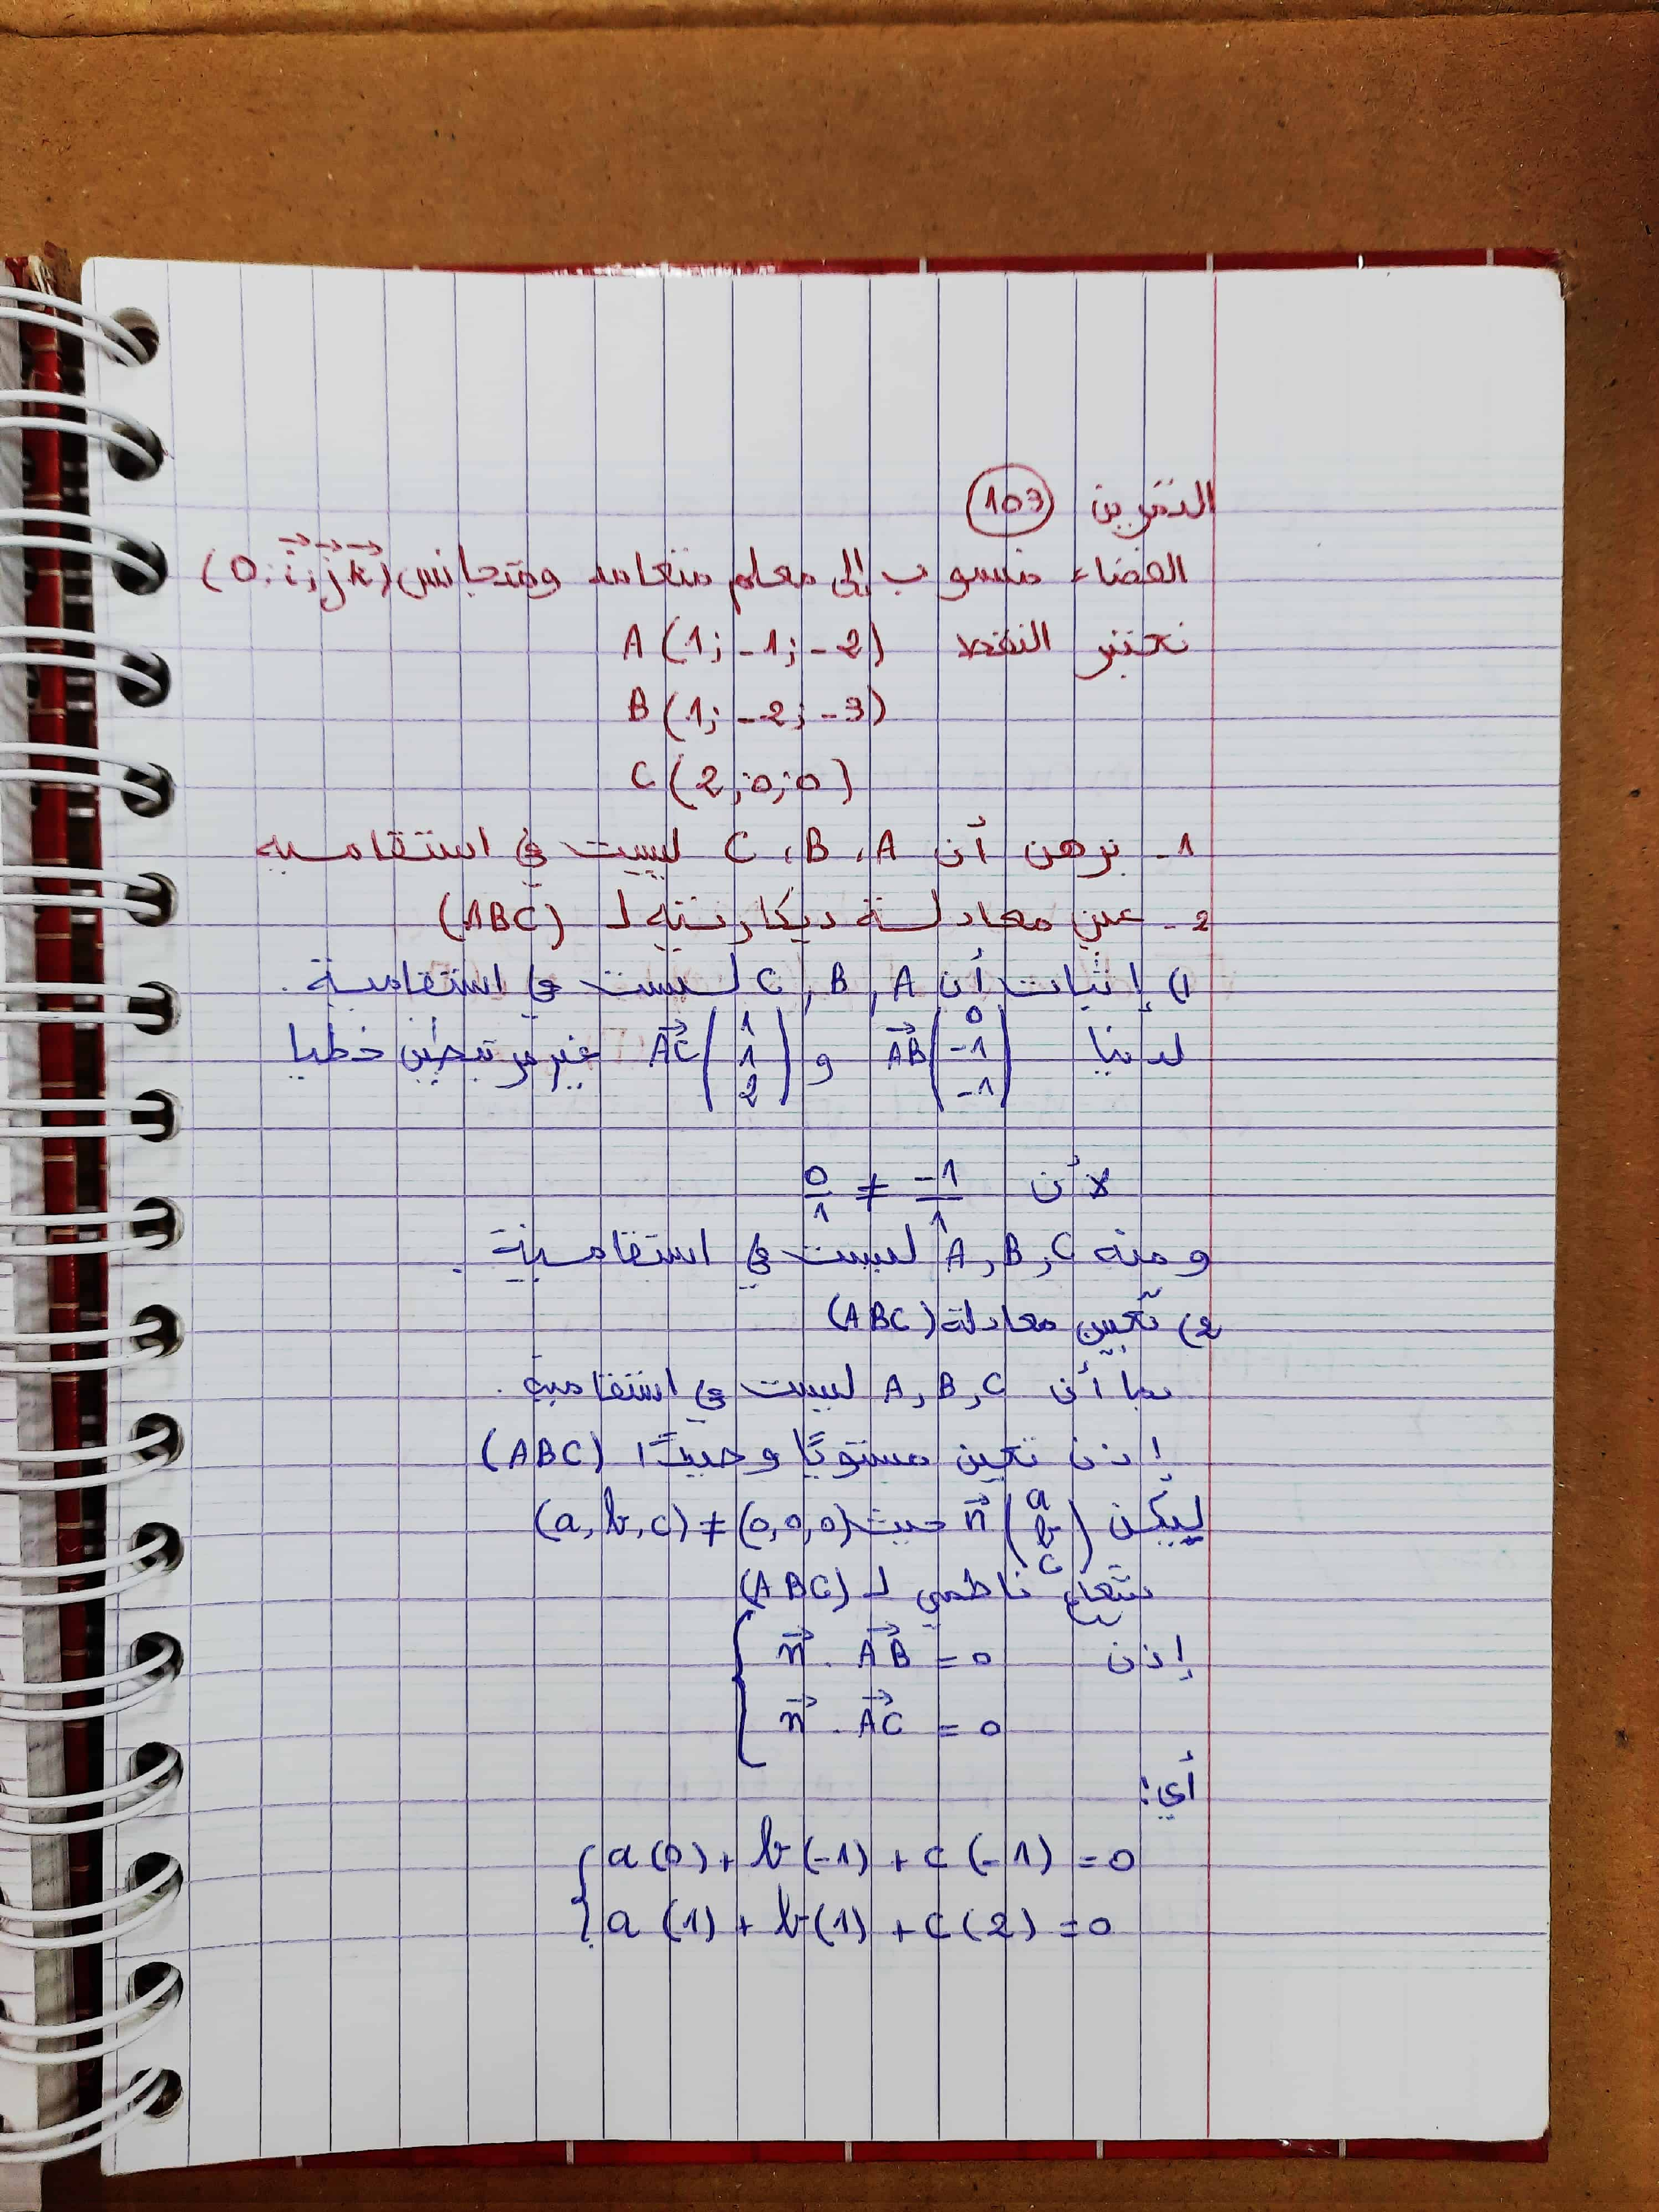 التمرين 103
الفضاء منسوب إلى معلم متعامد ومتجانس (O; i; j; k)
نعتبر النقط A(1; -1; -2)
B(1; -2; -3)
C(2; 0; 0)
1- برهن أن C، B، A ليست في استقامية
2- عين معادلة ديكارتية لـ (ABC)
1) إثبات أن C, B, A ليست في استقامية.
لدينا AB (0 -1 -1) و AC (1 1 2) غير مرتبطين خطيا
لأن 0/1 ≠ -1/1
ومنه A, B, C ليست في استقامية.
2) تعيين معادلة (ABC)
بما أن A, B, C ليست في استقامية.
إذن تعين مستويًا وحيدًا (ABC)
ليكن n (a b c) حيث (a, b, c) ≠ (0, 0, 0)
شعاع ناظمي لـ (ABC)
إذن { n . AB = 0
n . AC = 0
أي:
{ a(0) + b(-1) + c(-1) = 0
a(1) + b(1) + c(2) = 0